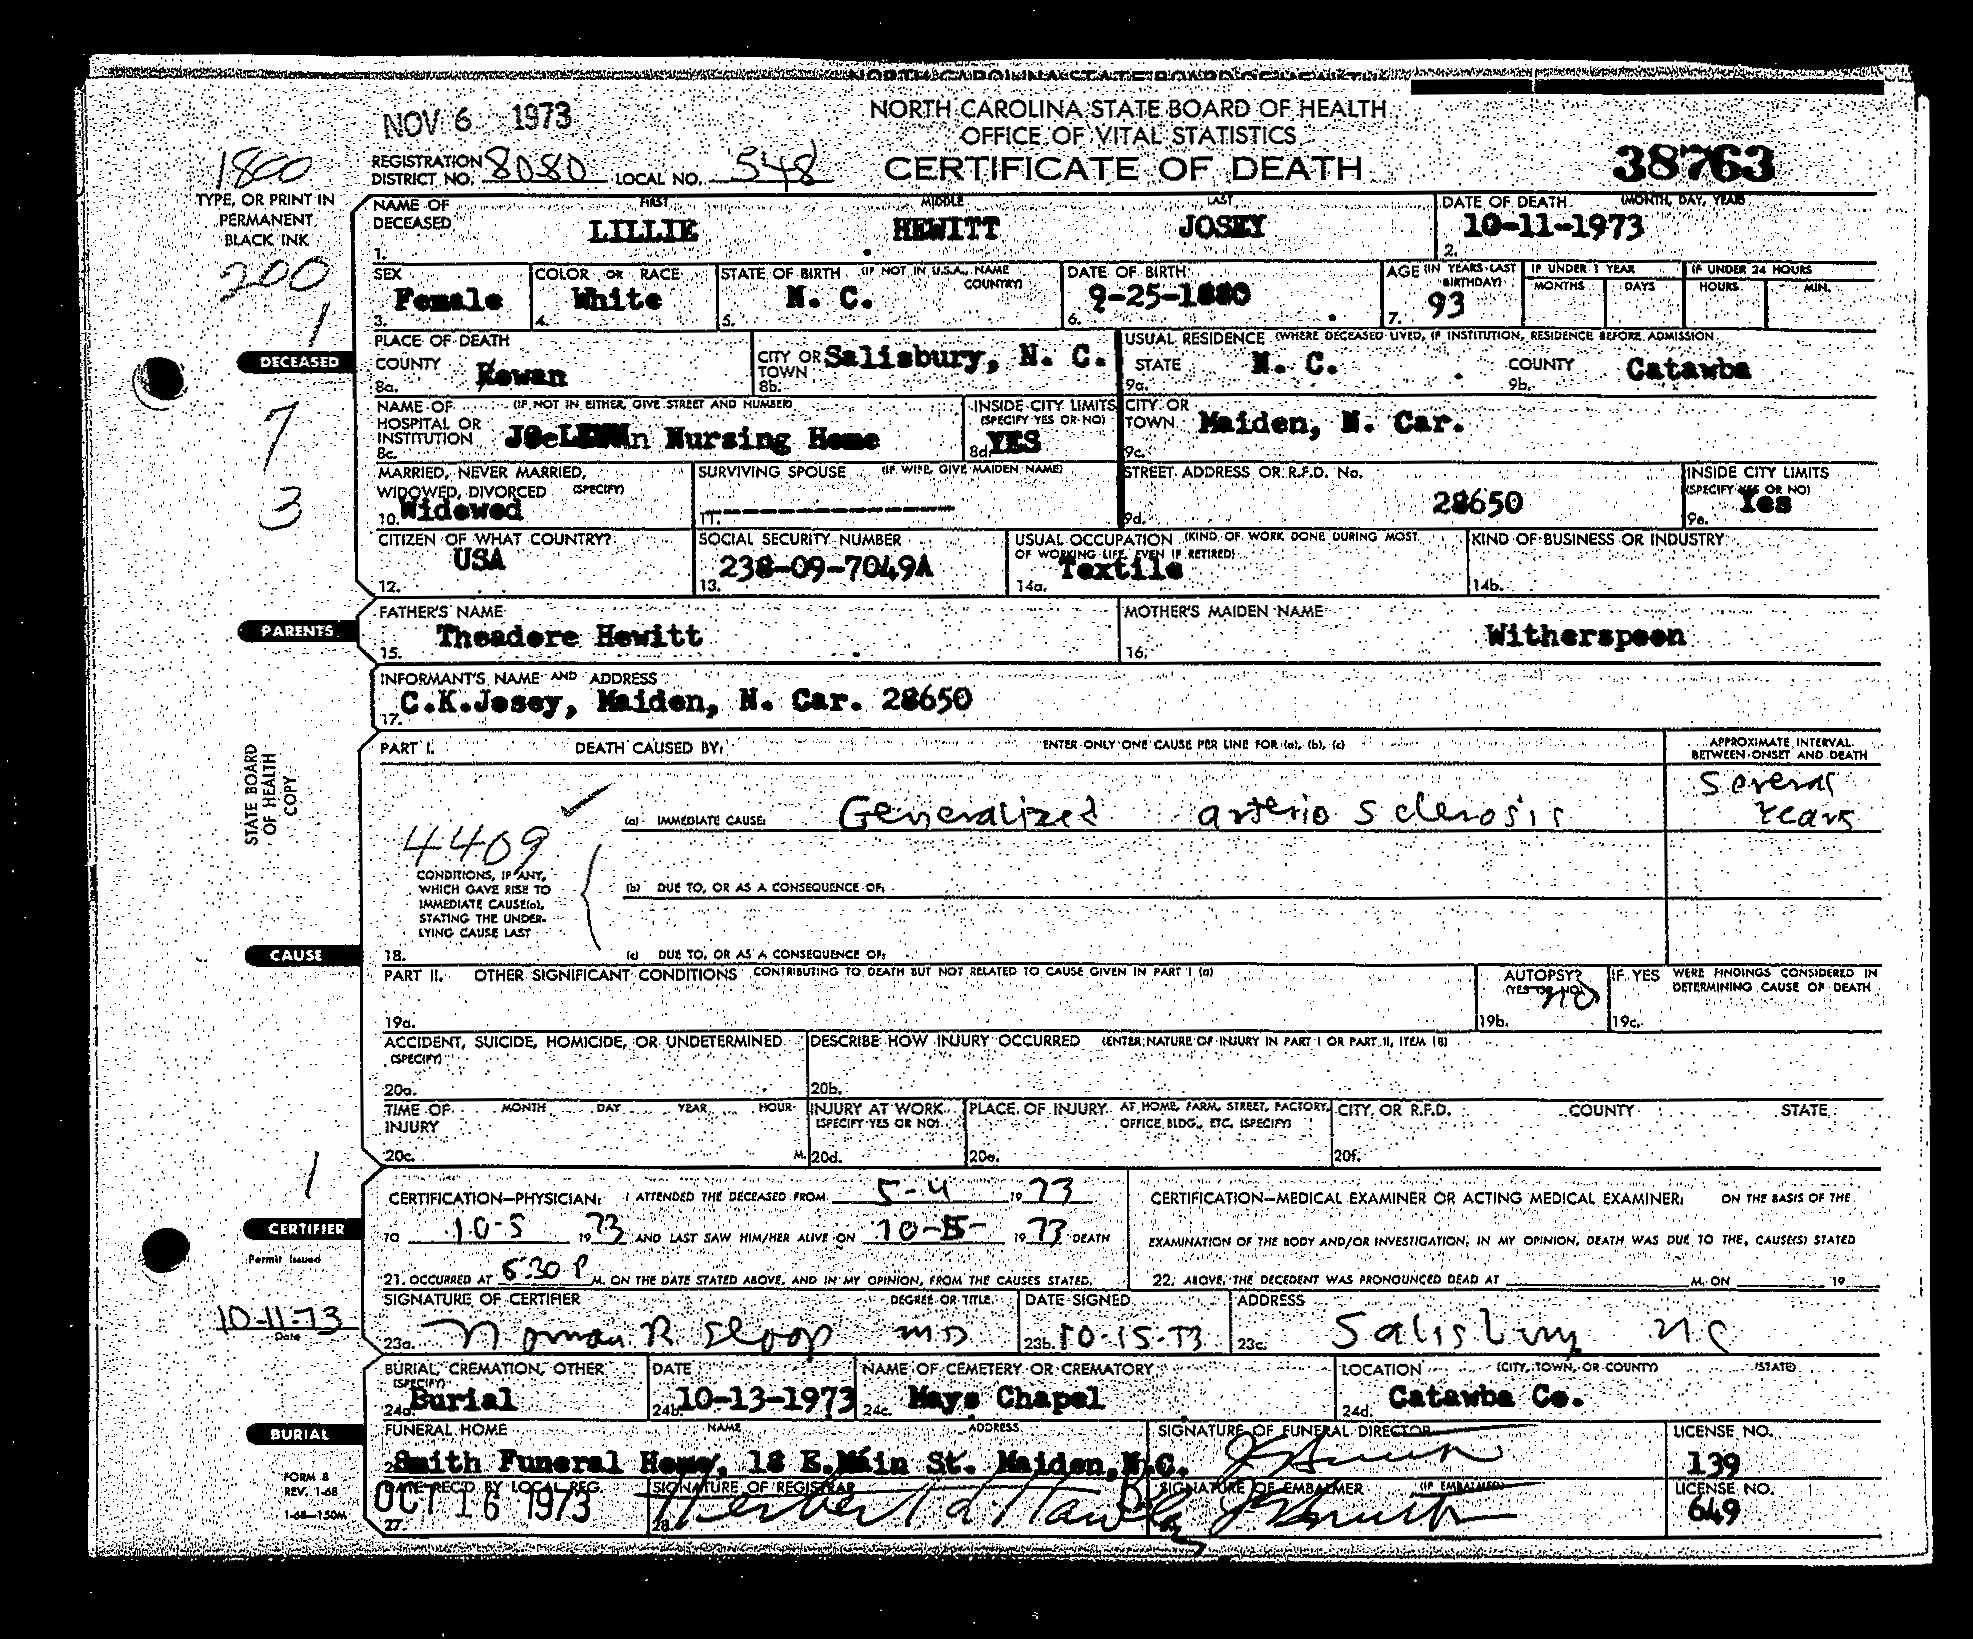 NORTH CAROLINA STATE BOARD OF HEALTH
OFFICE OF VITAL STATISTICS
CERTIFICATE OF DEATH
NOV 6 1973
38763
1800
REGISTRATION DISTRICT NO. 8080 LOCAL NO. 548
TYPE, OR PRINT IN
PERMANENT
BLACK INK
200
1
NAME OF DECEASED FIRST MIDDLE LAST
1. LILLIE HEWITT JOSEY
DATE OF DEATH (MONTH, DAY, YEAR)
2. 10-11-1973
SEX
3. Female
COLOR OR RACE
4. White
STATE OF BIRTH (IF NOT IN U.S.A., NAME COUNTRY)
5. N. C.
DATE OF BIRTH
6. 9-25-1880
AGE (IN YEARS LAST BIRTHDAY)
7. 93
IF UNDER 1 YEAR
MONTHS DAYS
IF UNDER 24 HOURS
HOURS MIN.
DECEASED
7
3
PLACE OF DEATH
COUNTY
8a. Rowan
CITY OR TOWN
8b. Salisbury, N. C.
USUAL RESIDENCE (WHERE DECEASED LIVED, IF INSTITUTION, RESIDENCE BEFORE ADMISSION
STATE
9a. N. C.
COUNTY
9b. Catawba
NAME OF HOSPITAL OR INSTITUTION (IF NOT IN EITHER, GIVE STREET AND NUMBER)
8c. Nursing Home
INSIDE CITY LIMITS (SPECIFY YES OR NO)
8d. YES
CITY OR TOWN
9c. Maiden, N. Car.
MARRIED, NEVER MARRIED,
WIDOWED, DIVORCED (SPECIFY)
10. Widowed
SURVIVING SPOUSE (IF WIFE, GIVE MAIDEN NAME)
11. --------------------
STREET ADDRESS OR R.F.D. No.
9d. 28650
INSIDE CITY LIMITS
(SPECIFY YES OR NO)
9e. Yes
CITIZEN OF WHAT COUNTRY?
12. USA
SOCIAL SECURITY NUMBER
13. 238-09-7049A
USUAL OCCUPATION (KIND OF WORK DONE DURING MOST
OF WORKING LIFE, EVEN IF RETIRED)
14a. Textile
KIND OF BUSINESS OR INDUSTRY
14b.
PARENTS
FATHER'S NAME
15. Theadore Hewitt
MOTHER'S MAIDEN NAME
16. Witherspoon
INFORMANT'S NAME AND ADDRESS
17. C.K.Josey, Maiden, N. Car. 28650
STATE BOARD
OF HEALTH
COPY
PART I. DEATH CAUSED BY: ENTER ONLY ONE CAUSE PER LINE FOR (a), (b), (c)
APPROXIMATE INTERVAL
BETWEEN ONSET AND DEATH
(a) IMMEDIATE CAUSE: Generalized arterio sclerosis
Several
Years
4409
CONDITIONS, IF ANY,
WHICH GAVE RISE TO
IMMEDIATE CAUSE(a),
STATING THE UNDER-
LYING CAUSE LAST
(b) DUE TO, OR AS A CONSEQUENCE OF:
CAUSE
18. (c) DUE TO, OR AS A CONSEQUENCE OF:
PART II. OTHER SIGNIFICANT CONDITIONS CONTRIBUTING TO DEATH BUT NOT RELATED TO CAUSE GIVEN IN PART I (a)
19a.
AUTOPSY?
(YES OR NO) no
19b.
IF YES WERE FINDINGS CONSIDERED IN
DETERMINING CAUSE OF DEATH
19c.
ACCIDENT, SUICIDE, HOMICIDE, OR UNDETERMINED
(SPECIFY)
20a.
DESCRIBE HOW INJURY OCCURRED (ENTER NATURE OF INJURY IN PART I OR PART II, ITEM 18)
20b.
TIME OF INJURY MONTH DAY YEAR HOUR
20c. M.
INJURY AT WORK
(SPECIFY YES OR NO)
20d.
PLACE OF INJURY AT HOME, FARM, STREET, FACTORY,
OFFICE BLDG., ETC. (SPECIFY)
20e.
CITY OR R.F.D. COUNTY STATE
20f.
1
CERTIFIER
Permit Issued
10-11-73
Date
CERTIFICATION—PHYSICIAN: I ATTENDED THE DECEASED FROM 5-4 19 73
TO 10-5 19 73 AND LAST SAW HIM/HER ALIVE ON 10-5- 19 73 DEATH
21. OCCURRED AT 6:30 P M. ON THE DATE STATED ABOVE, AND IN MY OPINION, FROM THE CAUSES STATED.
CERTIFICATION—MEDICAL EXAMINER OR ACTING MEDICAL EXAMINER: ON THE BASIS OF THE
EXAMINATION OF THE BODY AND/OR INVESTIGATION, IN MY OPINION, DEATH WAS DUE TO THE, CAUSE(S) STATED
22. ABOVE, THE DECEDENT WAS PRONOUNCED DEAD AT M. ON 19
SIGNATURE OF CERTIFIER DEGREE OR TITLE
23a. Norman R Sloop MD
DATE SIGNED
23b. 10-15-73
ADDRESS
23c. Salisbury NC
BURIAL, CREMATION, OTHER
(SPECIFY)
24a. Burial
DATE
24b. 10-13-1973
NAME OF CEMETERY OR CREMATORY
24c. Mays Chapel
LOCATION (CITY, TOWN, OR COUNTY) (STATE)
24d. Catawba Co.
BURIAL
FUNERAL HOME NAME ADDRESS
Smith Funeral Home, 18 E.Main St. Maiden,N.C.
SIGNATURE OF FUNERAL DIRECTOR
LICENSE NO.
139
FORM 8
REV. 1-68
1-68—150M
DATE REC'D BY LOCAL REG.
27. OCT 16 1973
SIGNATURE OF REGISTRAR
28.
SIGNATURE OF EMBALMER (IF EMBALMED)
LICENSE NO.
649